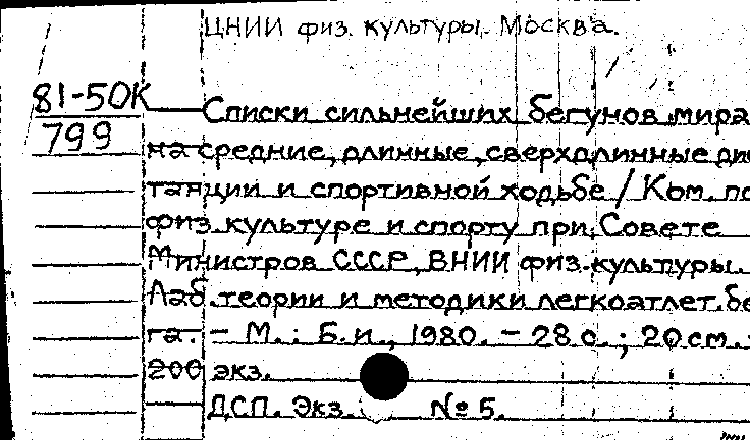 ЦНИИ физ. культуры. Москва.
81-50К
799
Списки сильнейших бегунов мира
на средние, длинные, сверхдлинные дис
танции и спортивной ходьбе / Ком. по
физ. культуре и спорту при Совете
Министров СССР, ВНИИ физ. культуры.
Лаб. теории и методики легкоатлет. бе
га. - М. : Б. и., 1980. - 28 с. ; 20 см. -
200 экз.
ДСП. Экз. № 5.